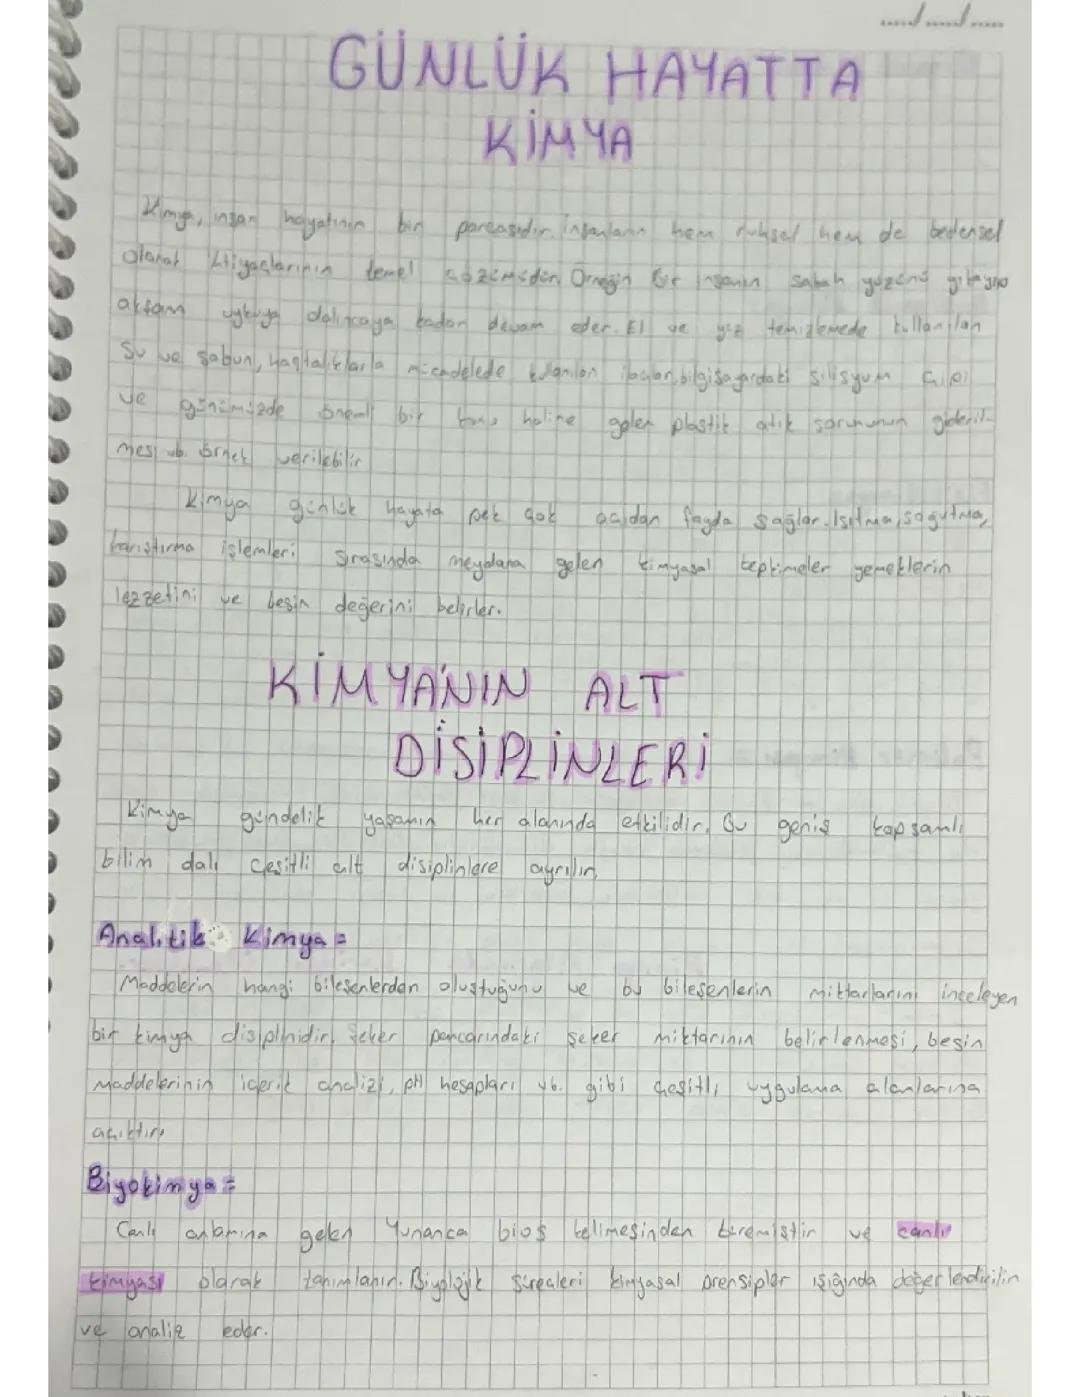 GÜNLÜK HAYATTA
KİMYA
Kimya, insan hayatının bir parçasıdır. İnsanların hem ruhsal hem de bedensel
olarak ihtiyaçlarının temel çözümüdür. Örneğin bir insanın sabah yüzünü yıkayıp
akşam uykuya dalıncaya kadar devam eder. El ve yüz temizlemede kullanılan
su ve sabun, hastalıklarla mücadelede kullanılan ilaçlar, bilgisayardaki silisyum çipi
ve günümüzde önemli bir konu haline gelen plastik atık sorununun gideril-
mesi vb. örnek verilebilir
Kimya günlük hayata pek çok açıdan fayda sağlar. Isıtma, soğutma,
karıştırma işlemleri sırasında meydana gelen kimyasal tepkimeler yemeklerin
lezzetini ve besin değerini belirler.
KİMYA'NIN ALT
DİSİPLİNLERİ
Kimya gündelik yaşamın her alanında etkilidir. Bu geniş kapsamlı
bilim dalı çeşitli alt disiplinlere ayrılır.
Analitik Kimya =
Maddelerin hangi bileşenlerden oluştuğunu ve bu bileşenlerin miktarlarını inceleyen
bir kimya disiplinidir. Şeker pancarındaki şeker miktarının belirlenmesi, besin
maddelerinin içerik analizi, pH hesapları vb. gibi çeşitli uygulama alanlarına
açıktır.
Biyokimya =
Canlı anlamına gelen Yunanca bios kelimesinden türemiştir ve canlı
kimyası olarak tanımlanır. Biyolojik süreçleri kimyasal prensipler ışığında değerlendirilir
ve analiz eder.